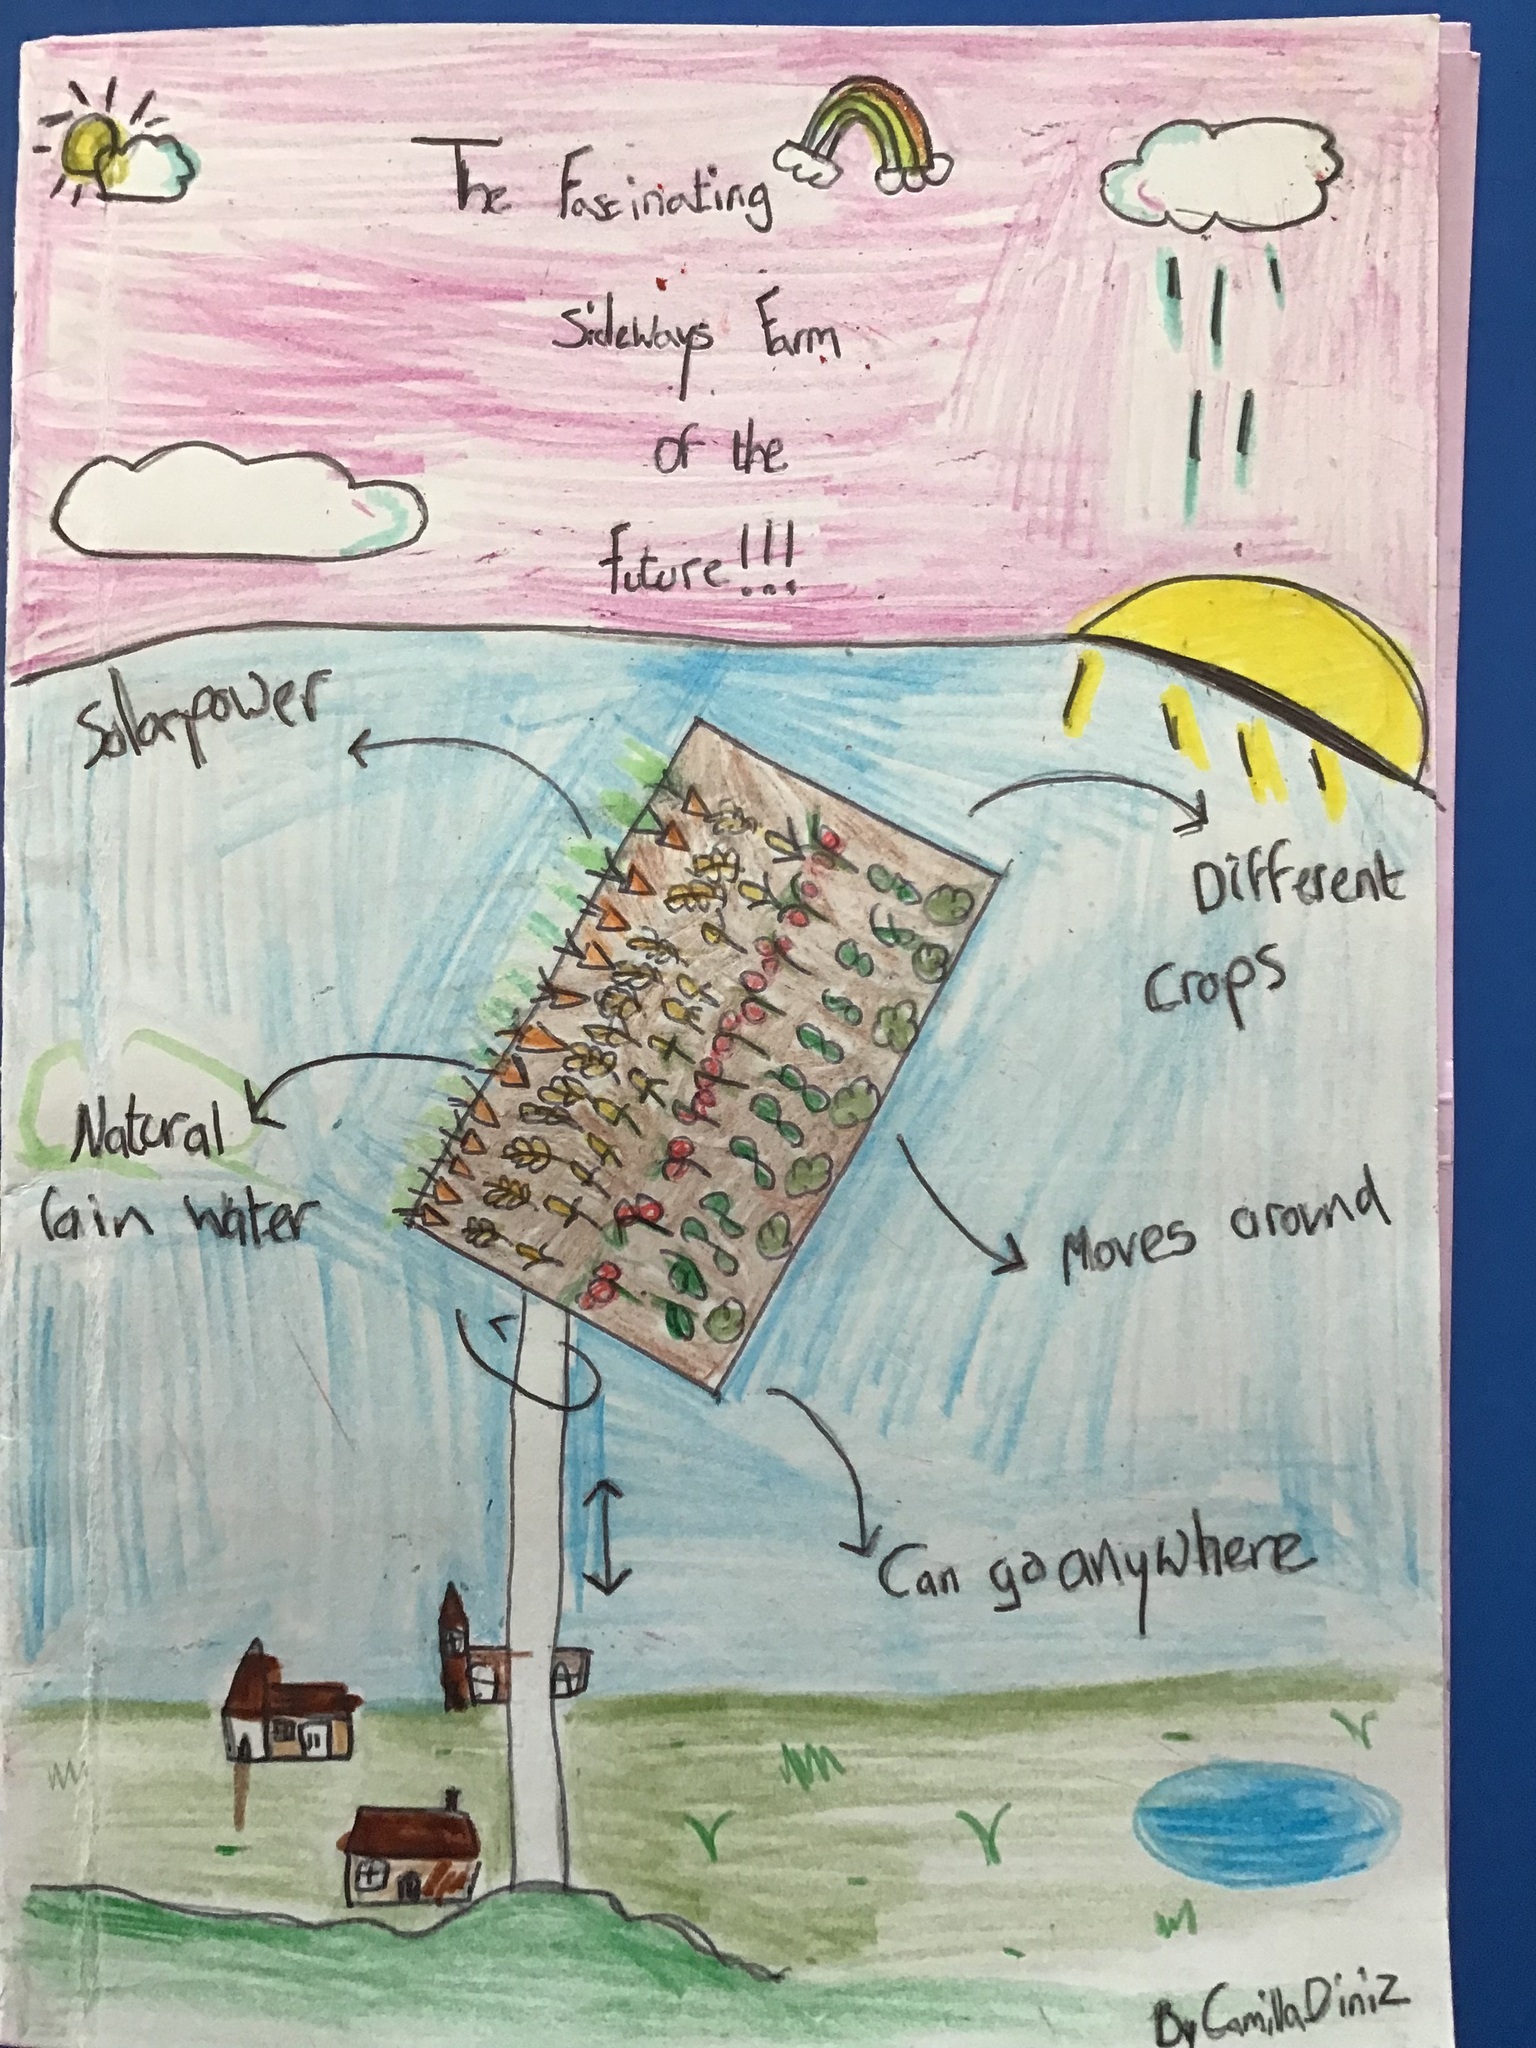 The Fascinating
Sideways Farm
of the
future!!!
Solarpower
Different
crops
Natural
rain water
Moves around
Can go anywhere
By Camilla Diniz